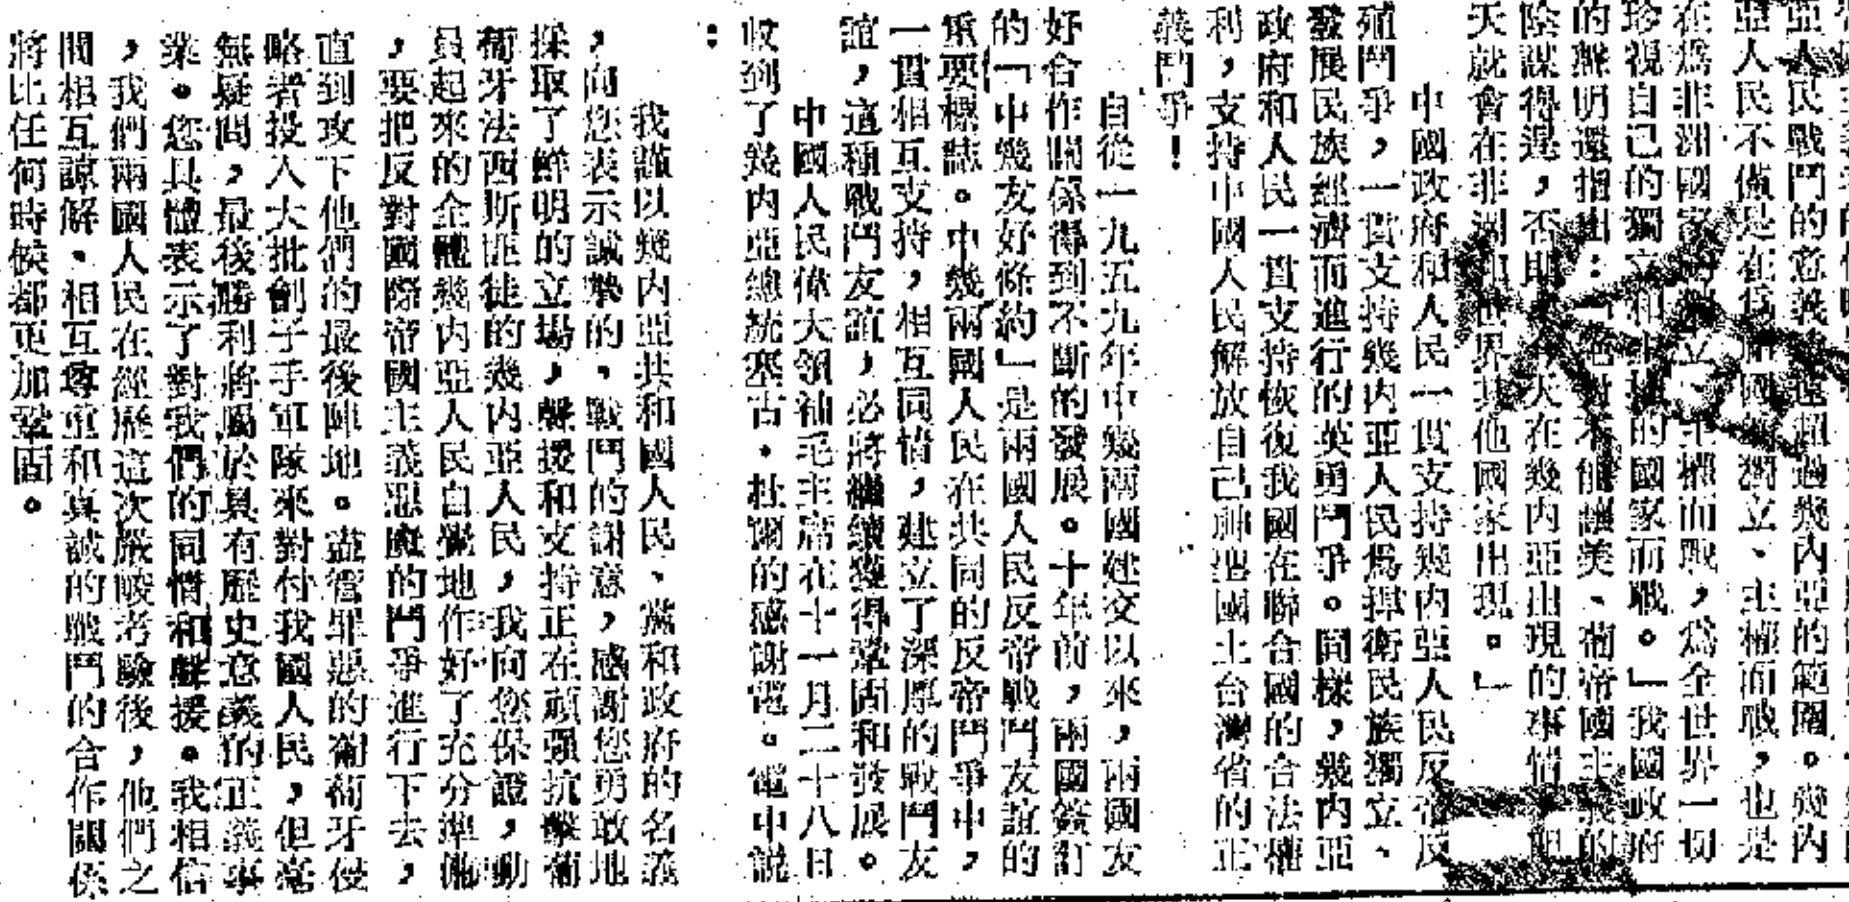 亞人民戰鬥的意義遠遠超過幾內亞的範圍。幾內
亞人民不僅是在爲祖國獨立、主權而戰,也是
在爲非洲國家的獨立主權而戰,爲全世界一切
珍視自己的獨立和主權的國家而戰。」我國政府
的聲明還指出:「絕對不能讓美、葡帝國主義的
陰謀得逞,否則天在幾內亞出現的事情
天就會在非洲世界其他國家出現。」
中國政府和人民一貫支持幾內亞人民反帝反
殖鬥爭,一貫支持幾內亞人民爲捍衛民族獨立、
發展民族經濟而進行的英勇鬥爭。同樣,幾內亞
政府和人民一貫支持恢復我國在聯合國的合法權
利,支持中國人民解放自己神聖國土台灣省的正
義鬥爭!
自從一九五九年中幾兩國建交以來,兩國友
好合作關係得到不斷的發展。十年前,兩國簽訂
的「中幾友好條約」是兩國人民反帝戰鬥友誼的
重要標誌。中幾兩國人民在共同的反帝鬥爭中,
一貫相互支持,相互同情,建立了深厚的戰鬥友
誼,這種戰鬥友誼,必將繼續獲得鞏固和發展。
中國人民偉大領袖毛主席在十一月二十八日
收到了幾內亞總統塞古·杜爾的感謝電。電中說
:
我謹以幾內亞共和國人民、黨和政府的名義
,向您表示誠摯的、戰鬥的謝意,感謝您勇敢地
採取了鮮明的立場,聲援和支持正在頑强抗擊葡
萄牙法西斯匪徒的幾內亞人民,我向您保證,動
員起來的全體幾內亞人民自覺地作好了充分準備
,要把反對國際帝國主義惡魔的鬥爭進行下去,
直到攻下他們的最後陣地。盡管罪惡的葡萄牙侵
略者投入大批劊子手軍隊來對付我國人民,但毫
無疑問,最後勝利將屬於具有歷史意義的正義事
業。您具體表示了對我們的同情和聲援。我相信
,我們兩國人民在經歷這次嚴峻考驗後,他們之
間相互諒解、相互尊重和真誠的戰鬥的合作關係
將比任何時候都更加鞏固。